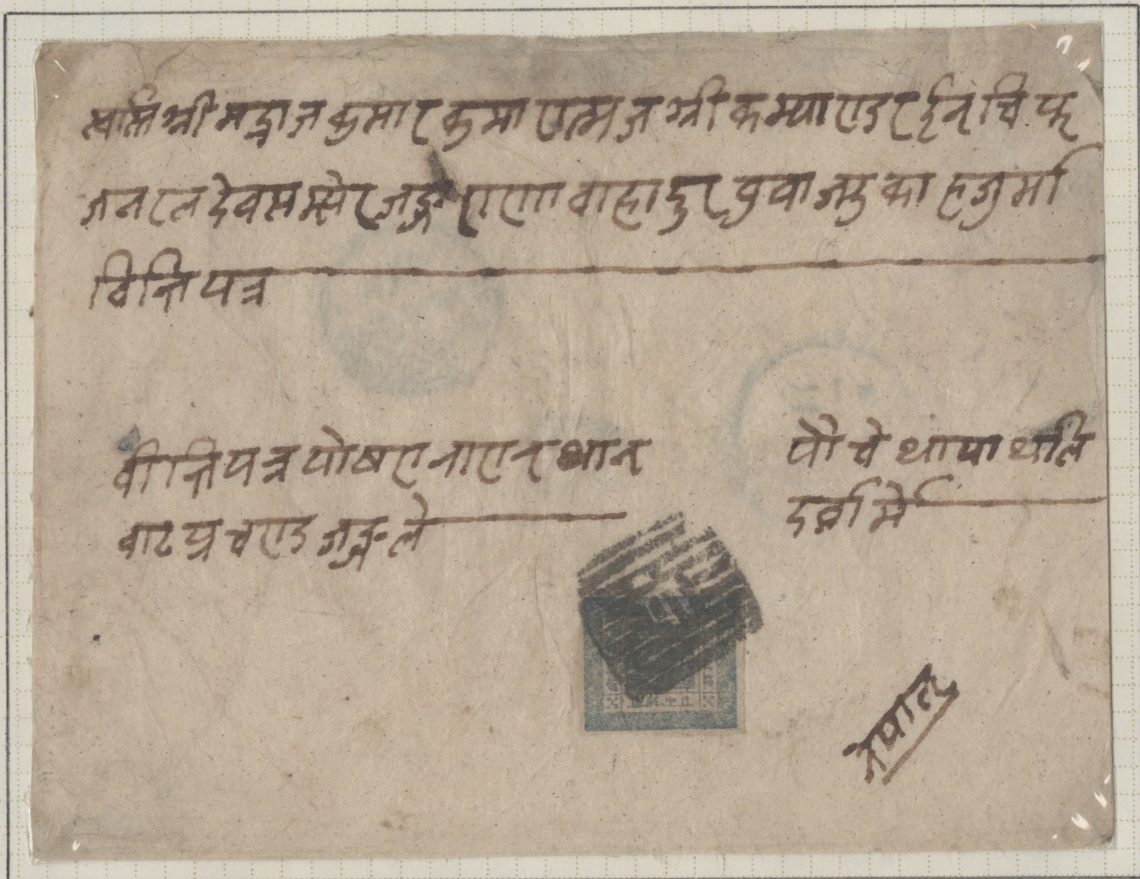 स्वस्ति श्री मद्राजकुमार कुमाराात्मज श्री कम्याण्डर ईन चिफ
जनरल देवसमसेर जङ्ग राणा वाहादुर वुवाज्यूका हजुर्मा
विन्ति पत्र
वीन्ति पत्र पोषरा नारानथान
वाट प्रचण्ड जङ्गले
पौचे थापाथलि
दर्वार्मे
नेपाल